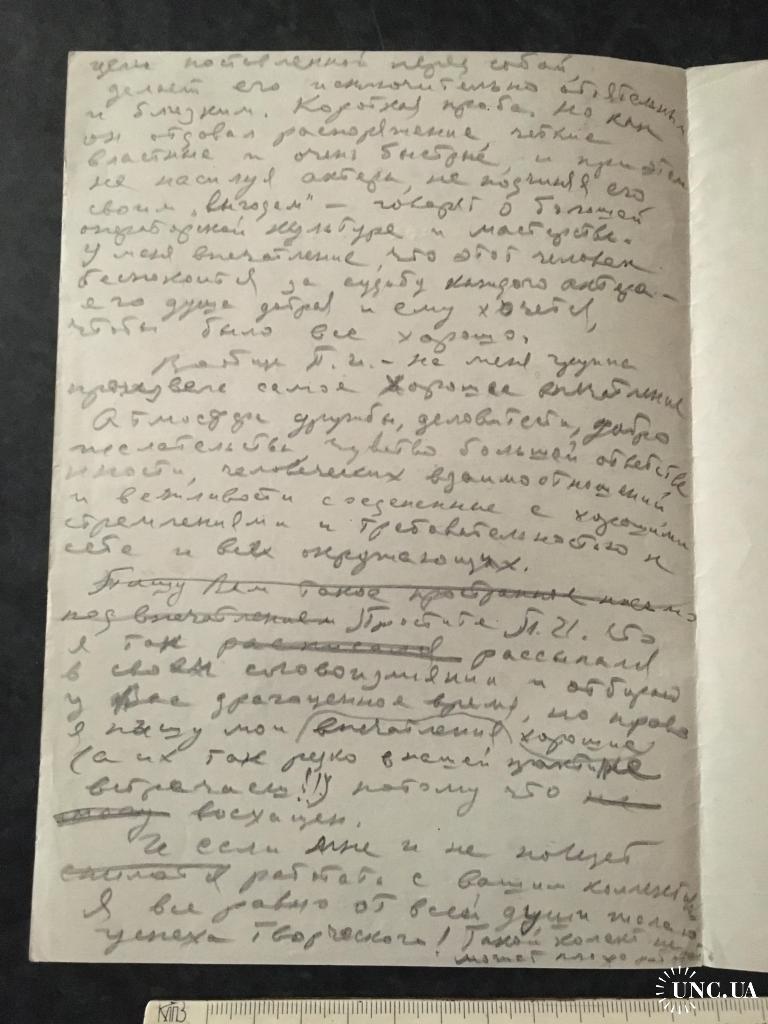 цели поставленной перед собой,
делает его исключительно обоятельным
и близким. Короткая проба. Но как
он отдавал распоряжение, четкие
властные и очень быстрые и при этом
не насилуя актера, не подчиняя его
своим „выгодам" – говорит о большой
операторской культуре и мастерстве.
У меня впечатление, что этот человек
беспокоится за судьбу каждого актера –
его душа добрая и ему хочется,
чтобы было все хорошо.
П. И. – на меня
произвела самое хорошее впечатление
Атмосфера дружбы, деловитости, добро
желательства, чувство большой ответстве
нности, человеческих взаимоотношений
и вежливости соедененные с хорошими
стремлениями и требовательностью к
себе и всех окружающих.
Пишу Вам такое пространное письмо
под впечатлением Простите П. И. что
я так расписался рассыпался
в своем словоизлиянии и отбираю
у Вас драгоценное время, но право
я пишу мои впечатления хорошие
(а их так редко в нашей практике
встречаешь!!!) потому что не
могу восхищен.
И если мне и не
работать с вашим коллективом
Я все равно от всей души желаю
успеха творческого! Такой колектив не
может плохо
UNC.UA